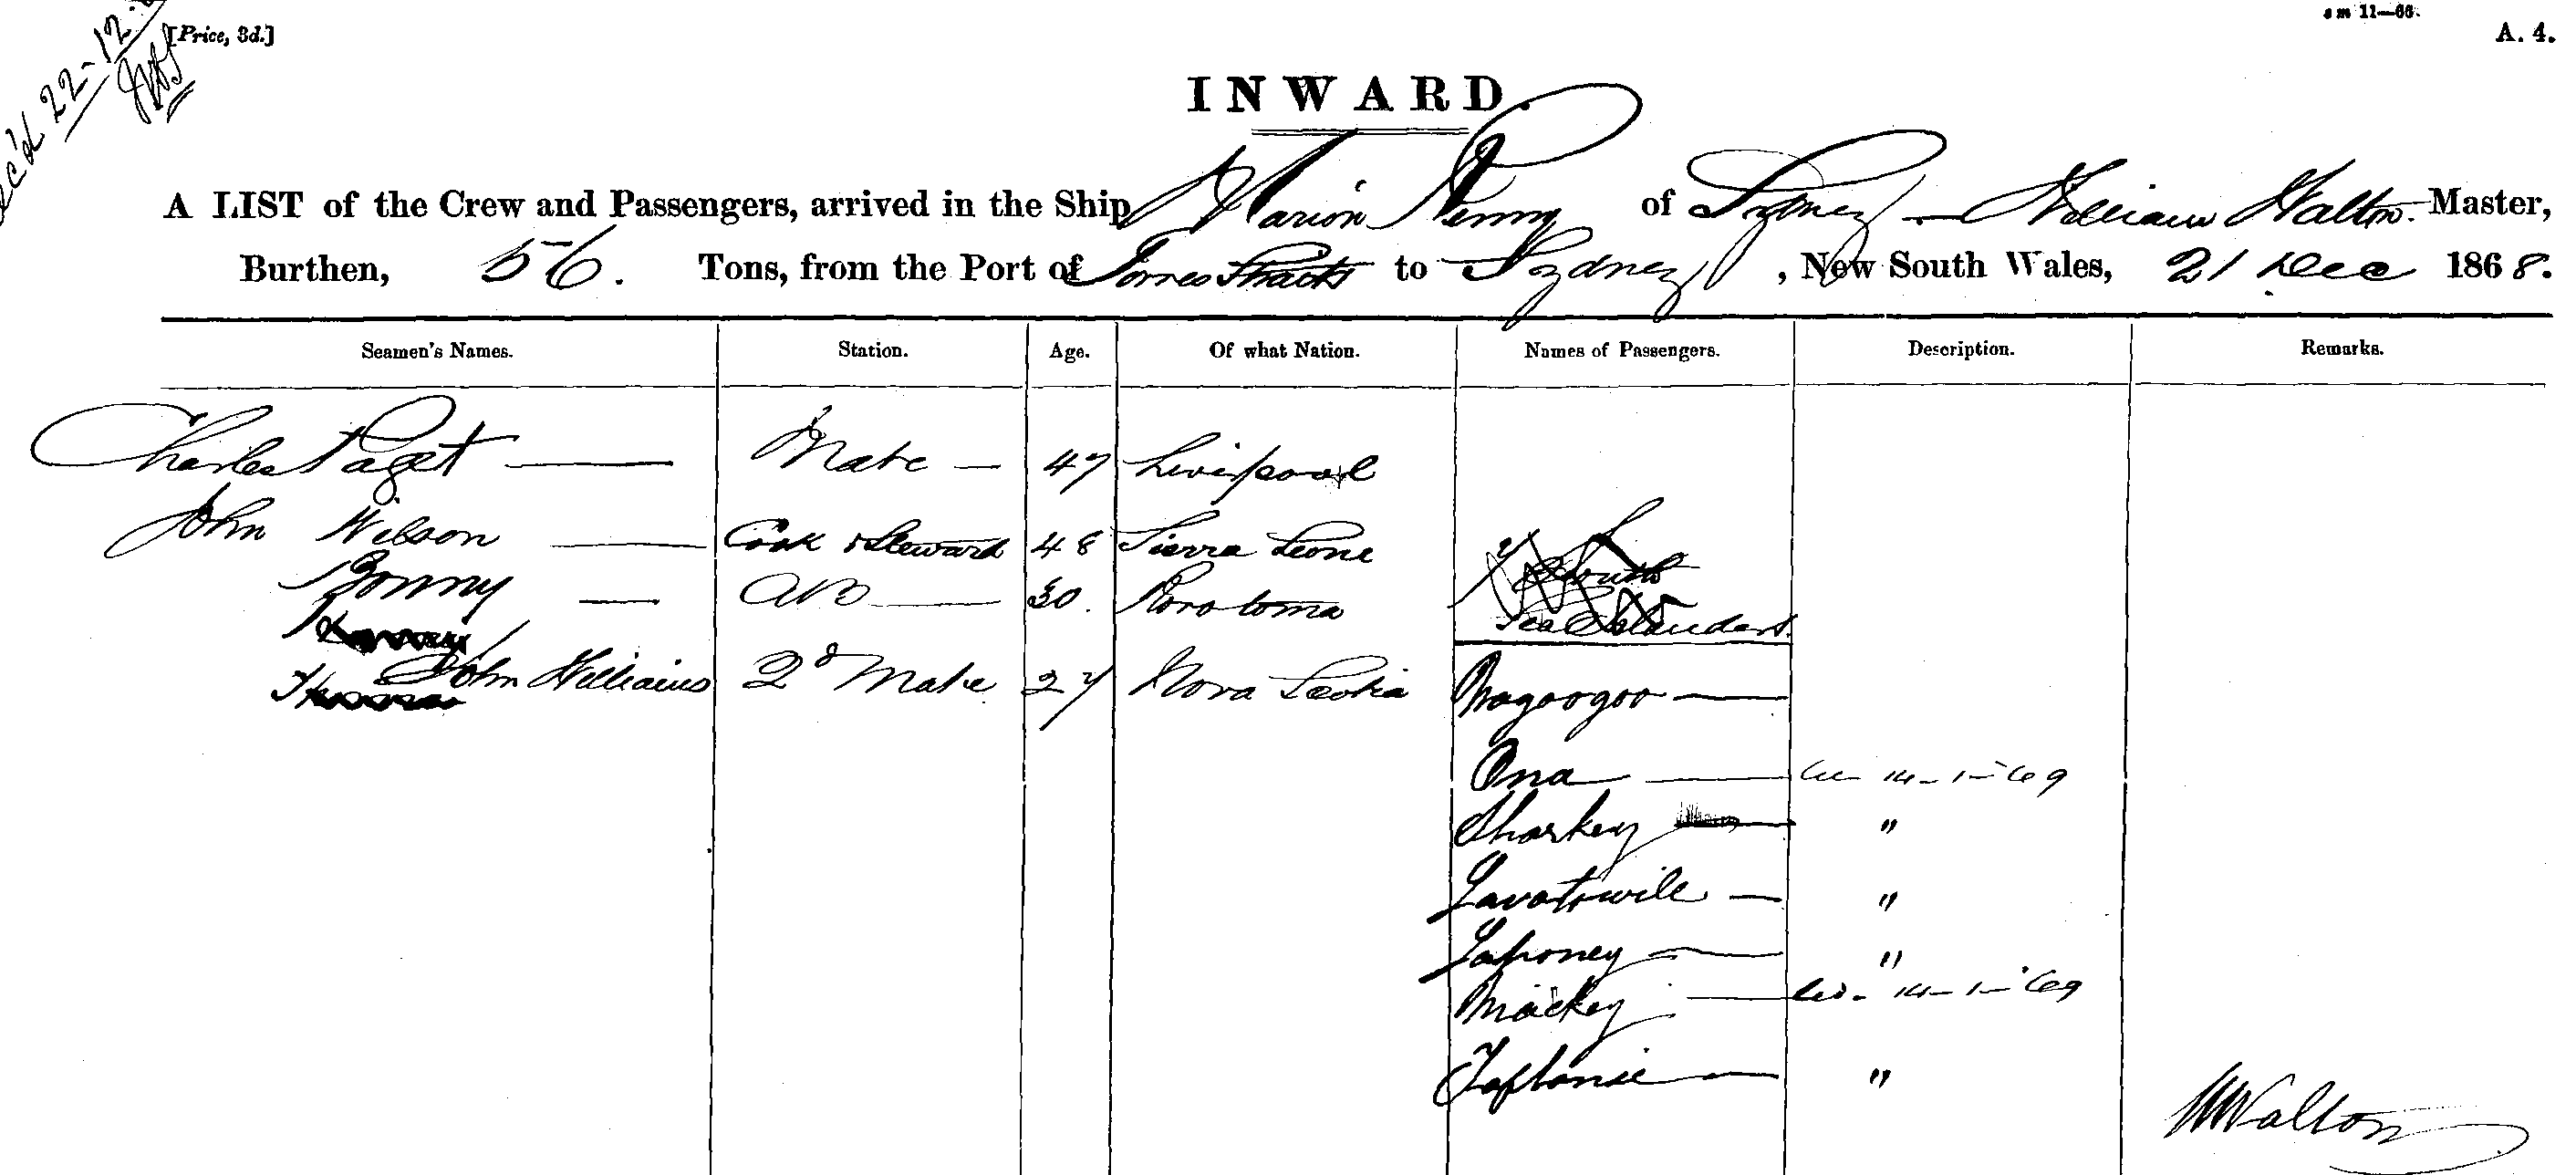 ec'd 22-12
[Price, 3d.]
11—66.
A. 4.
INWARD.
A LIST of the Crew and Passengers, arrived in the Ship Marion Renny of Sydney — William Walton Master,
Burthen, 56. Tons, from the Port of Torres Straits to Sydney, New South Wales, 21 Dec 1868.
Seamen's Names. Station. Age. Of what Nation. Names of Passengers. Description. Remarks.
Charles Paget — Mate — 47 Liverpool
John Wilson — Cook & Steward 48 Sierra Leone
South
Bonny — AB — 30. Rorotoma
Sea Islanders.
John Williams 2d Mate 27 Nova Scotia
Magoogoo —
Ona — 14-1-69
Sharkey — "
Lavatowile — "
Laponey — "
Mackey — 14-1-69
Taplanie — "
WWalton